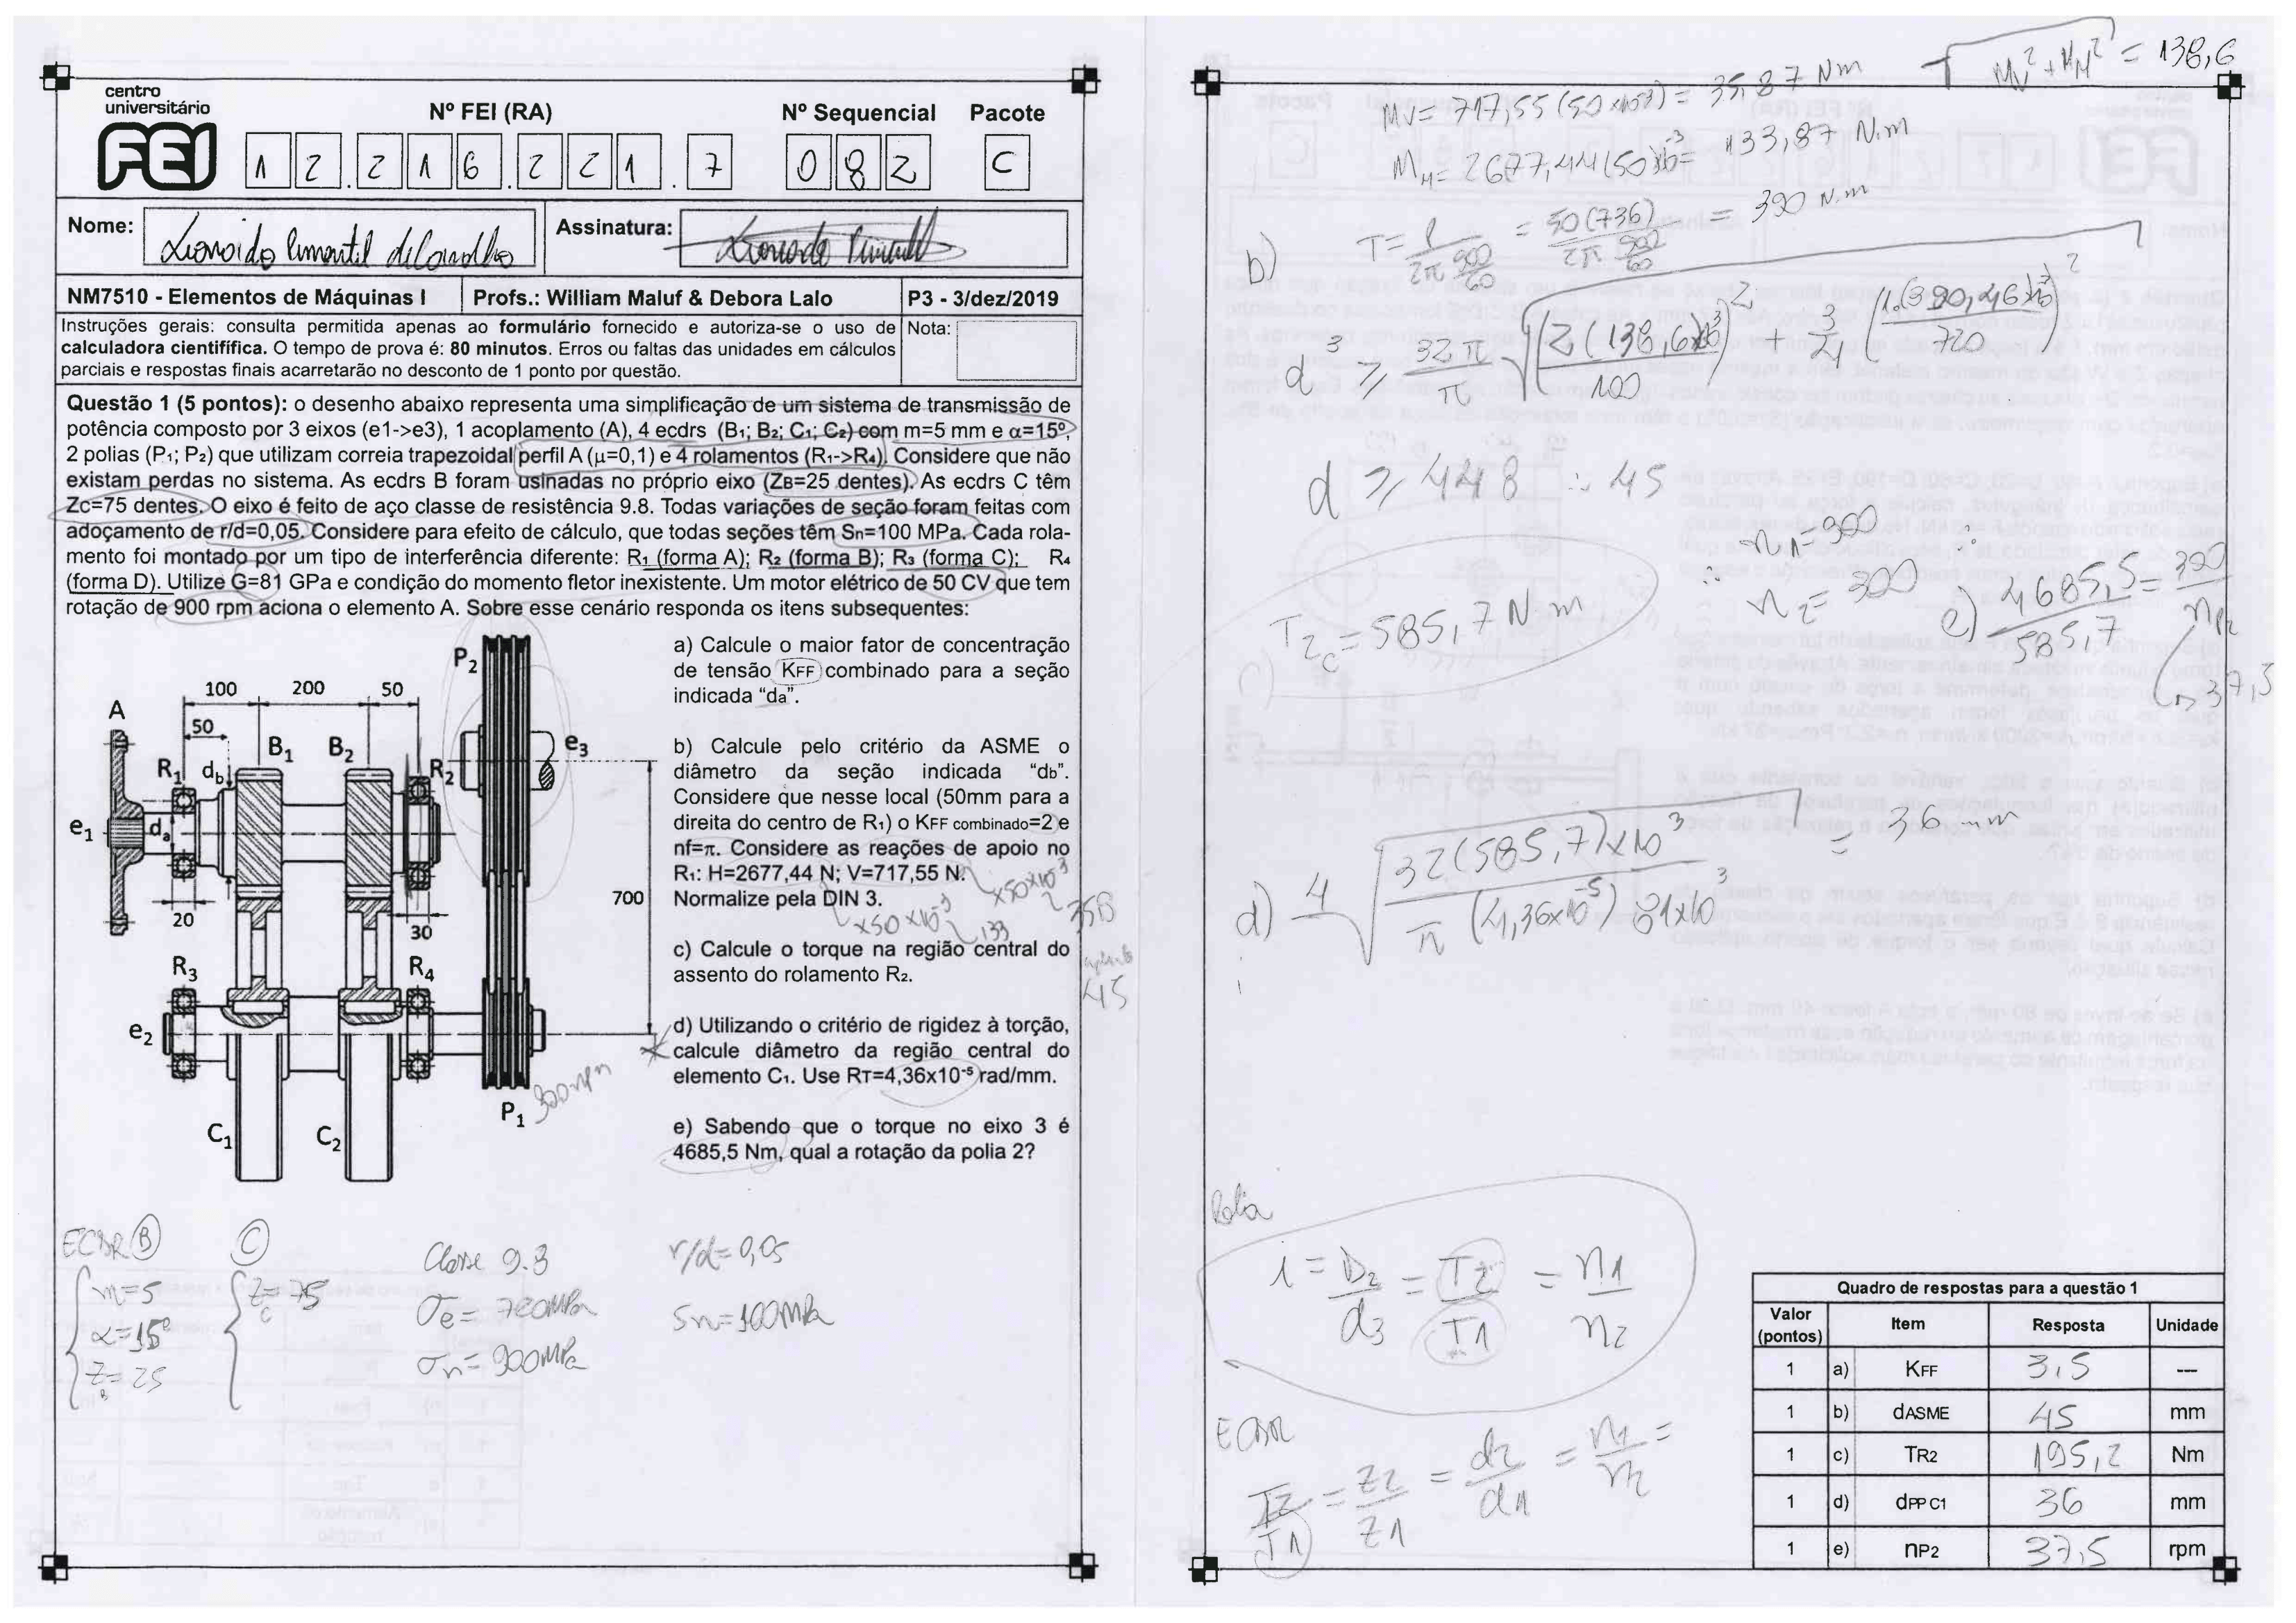 centro
universitário
FEI
Nº FEI (RA)
Nº Sequencial
Pacote
1 2 . 2 1 6 . 2 2 1 . 7
0 8 2
C
Nome:
Assinatura:
NM7510 - Elementos de Máquinas I
Profs.: William Maluf & Debora Lalo
P3 - 3/dez/2019
Instruções gerais: consulta permitida apenas ao formulário fornecido e autoriza-se o uso de
calculadora cientififica. O tempo de prova é: 80 minutos. Erros ou faltas das unidades em cálculos
parciais e respostas finais acarretarão no desconto de 1 ponto por questão.
Nota:
Questão 1 (5 pontos): o desenho abaixo representa uma simplificação de um sistema de transmissão de
potência composto por 3 eixos (e1->e3), 1 acoplamento (A), 4 ecdrs (B1; B2; C1; C2) com m=5 mm e α=15º,
2 polias (P1; P2) que utilizam correia trapezoidal perfil A (μ=0,1) e 4 rolamentos (R1->R4). Considere que não
existam perdas no sistema. As ecdrs B foram usinadas no próprio eixo (ZB=25 dentes). As ecdrs C têm
Zc=75 dentes. O eixo é feito de aço classe de resistência 9.8. Todas variações de seção foram feitas com
adoçamento de r/d=0,05. Considere para efeito de cálculo, que todas seções têm Sn=100 MPa. Cada rola-
mento foi montado por um tipo de interferência diferente: R1 (forma A); R2 (forma B); R3 (forma C); R4
(forma D). Utilize G=81 GPa e condição do momento fletor inexistente. Um motor elétrico de 50 CV que tem
rotação de 900 rpm aciona o elemento A. Sobre esse cenário responda os itens subsequentes:
P2
100 200 50
A
50
B1 B2
e3
R1 db R2
e1 da
20
30
700
R3 R4
e2
P1
300 rpm
C1 C2
a) Calcule o maior fator de concentração
de tensão KFF combinado para a seção
indicada “da”.
b) Calcule pelo critério da ASME o
diâmetro da seção indicada “db”.
Considere que nesse local (50mm para a
direita do centro de R1) o KFF combinado=2 e
nf=π. Considere as reações de apoio no
R1: H=2677,44 N; V=717,55 N.
Normalize pela DIN 3.
x50x10⁻³
133
x50x10⁻³
45
c) Calcule o torque na região central do
assento do rolamento R2.
d) Utilizando o critério de rigidez à torção,
calcule diâmetro da região central do
elemento C1. Use RT=4,36x10⁻⁵ rad/mm.
e) Sabendo que o torque no eixo 3 é
4685,5 Nm, qual a rotação da polia 2?
ECDR B
m=5
α=15º
ZB=25
C
Zc=75
Classe 9.8
σe=720MPa
σn=900MPa
r/d=0,05
Sn=100MPa
√Mv²+MH² = 138,6
MV= 717,55(50x10⁻³)= 35,87 Nm
MH= 2677,44(50)x10⁻³= 133,87 N.m
b) T= P / 2π 900/60 = 50(736) / 2π 900/60 = 390 N.m
d³ ≥ 32π/π √(2(138,6x10³)/100)² + 3/4 (1.(390,46x10³)/720)²
d ≥ 448 ∴ 45
n1=900 ∴
∴ n2=300
T2c=585,7 Nm
e) 4685,5/585,7 = 300/nP2
37,5
d) ⁴√32(585,7)x10³ / π (4,36x10⁻⁵) 81x10³ = 36 mm
Polia
i = D2/d3 = T2/T1 = n1/n2
ECDR
T2/T1 = Z2/Z1 = d2/d1 = n1/n2 =
Quadro de respostas para a questão 1
Valor (pontos) Item Resposta Unidade
1 a) KFF 3,5 ---
1 b) dASME 45 mm
1 c) TR2 195,2 Nm
1 d) dPP C1 36 mm
1 e) nP2 37,5 rpm